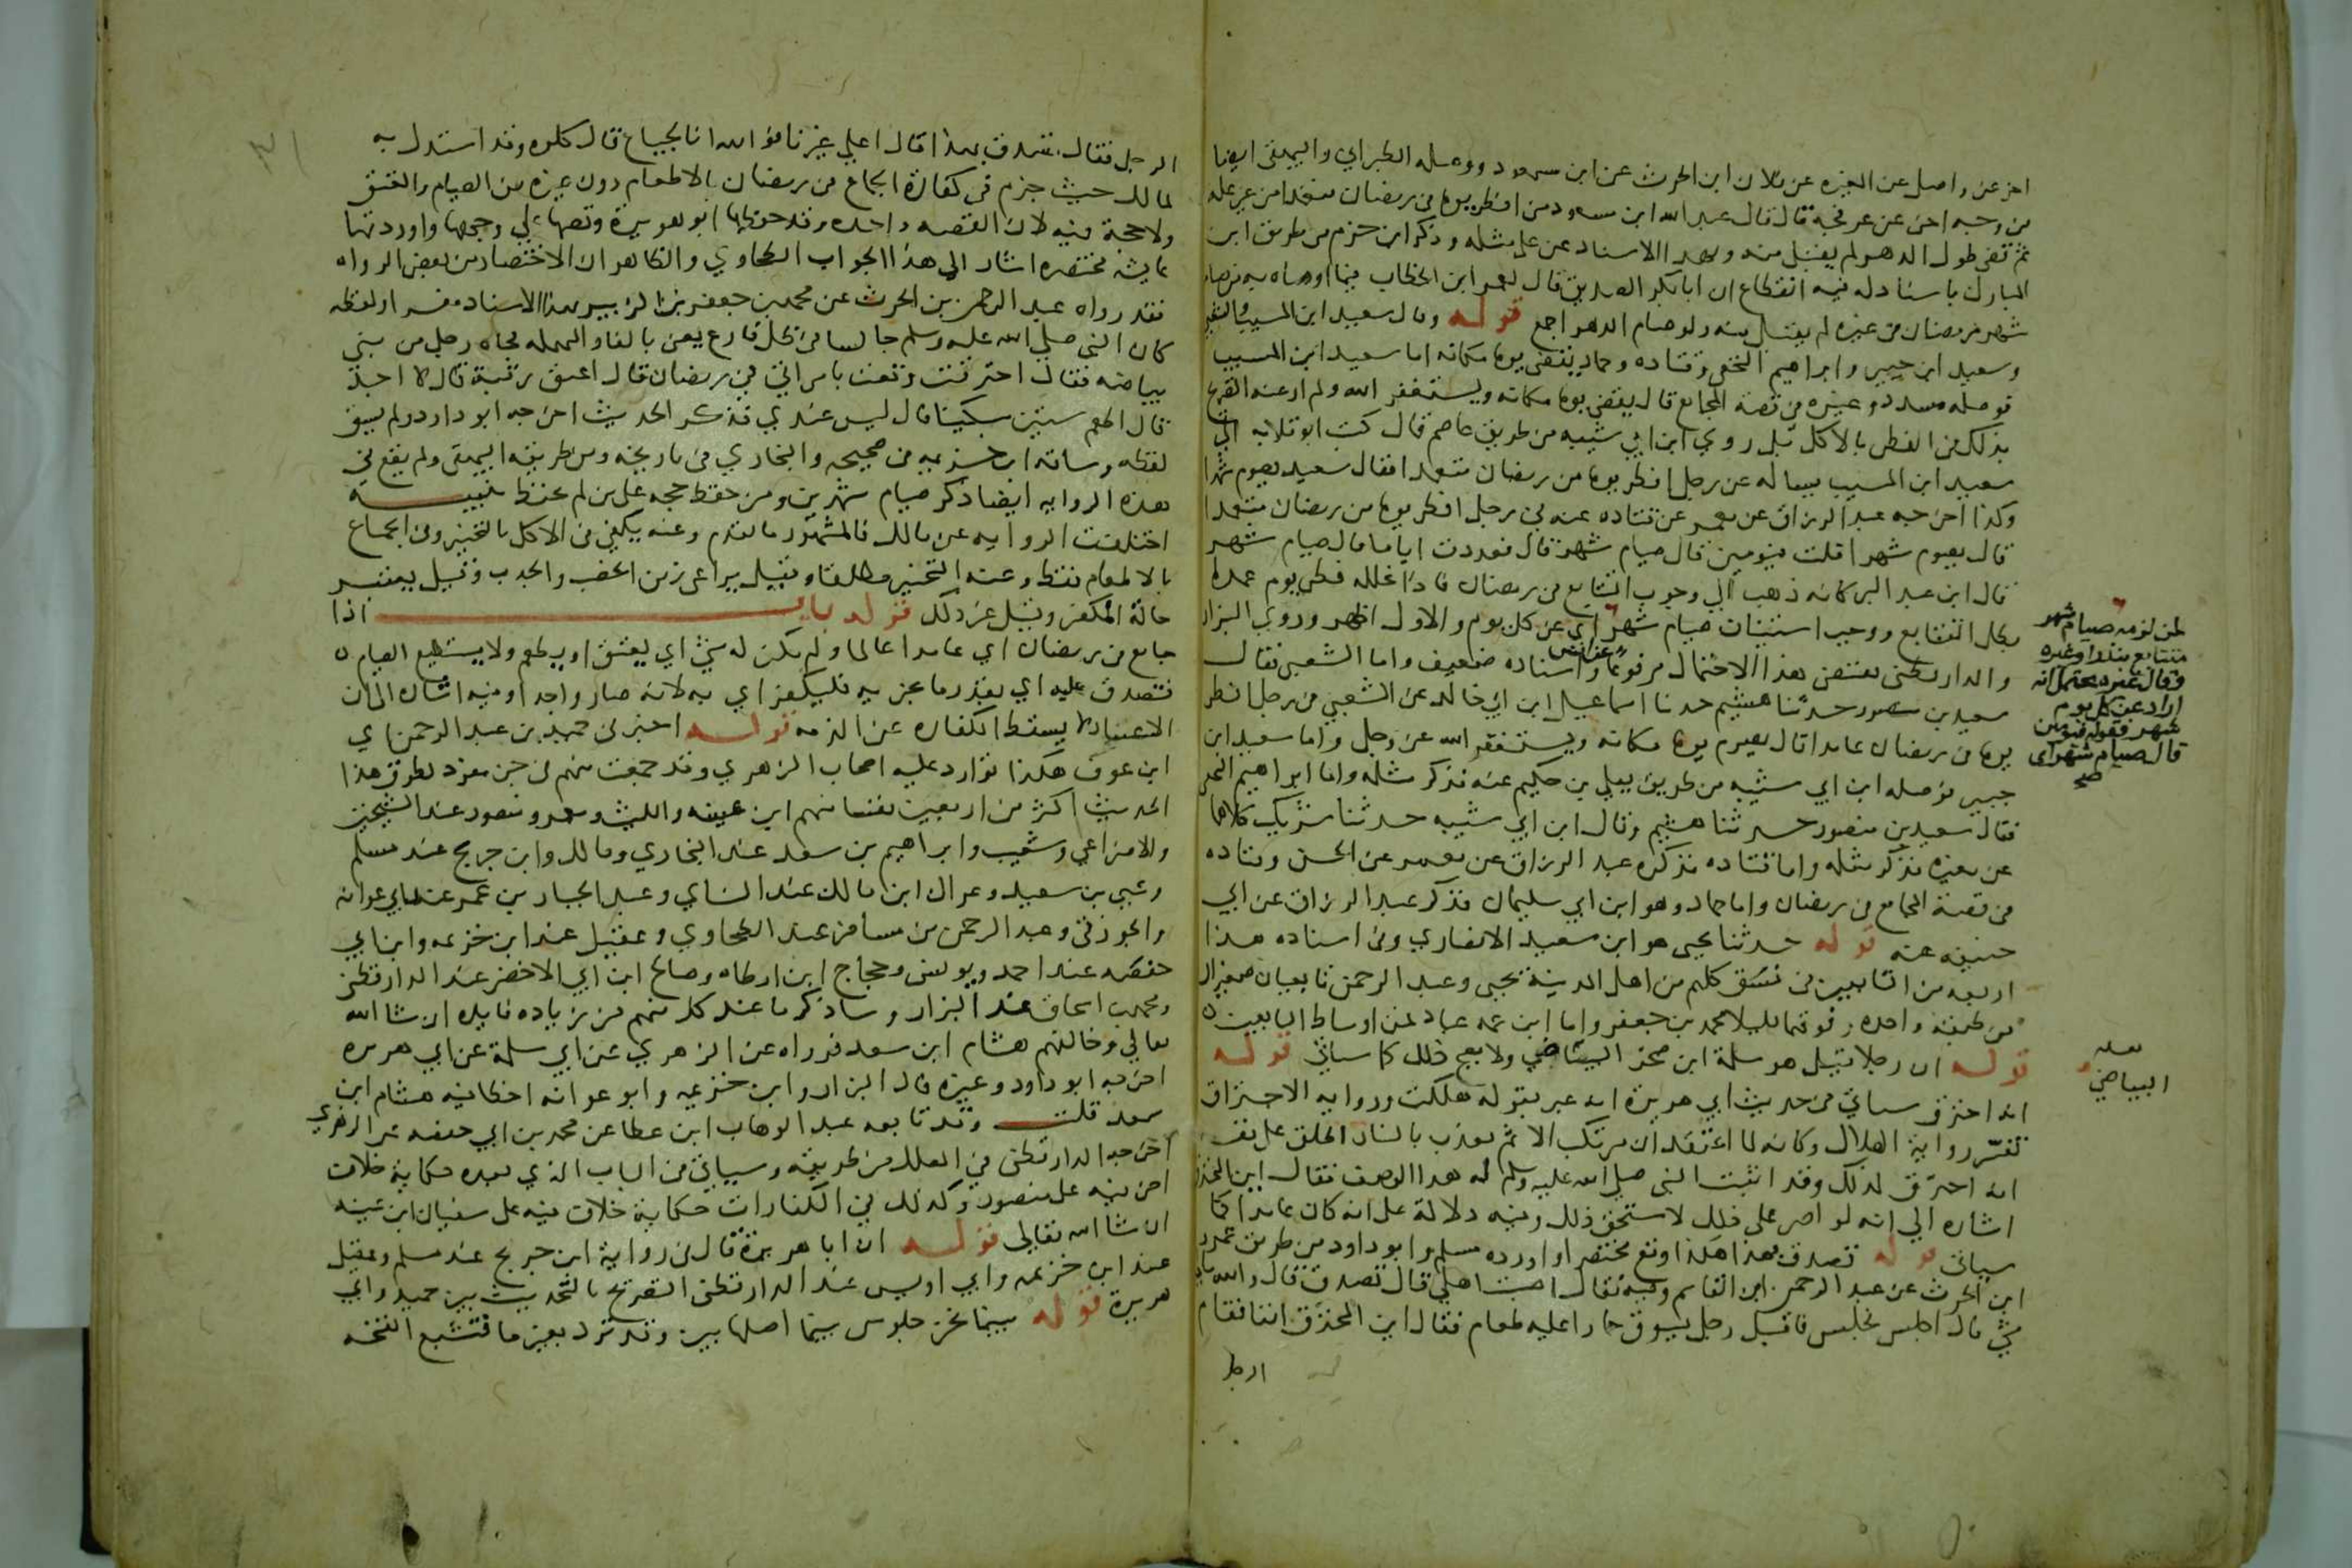 اخر عن واصل عن المغيرة عن فلان ابن الحرث عن ابن مسعود ووصله الطبراني والبيهقي ايضا
من وجه اخر عن عرفجة قال قال عبد الله ابن مسعود من افطر يوما من رمضان متعمدا من غير علة
ثم قضى طول الدهر لم يقبل منه وبهذا الاسناد عن علي مثله وذكر ابن حزم من طريق ابن
المبارك باسناد له فيه انقطاع ان ابا بكر الصديق قال لعمر ابن الخطاب فيما اوصاه به من صام
شهر رمضان في غيره لم يقبل منه ولو صام الدهر اجمع قوله وقال سعيد ابن المسيب والشعبي
وسعيد ابن جبير وابراهيم النخعي وقتاده وحماد يقضي يوما مكانه اما سعيد ابن المسيب
فوصله مسدد وغيره في قصة المجامع قال يقضي يوما مكانه ويستغفر الله ولم ار عنه التصريح
بذلك في الفطر بالاكل بل روي ابن ابي شيبه من طريق عاصم قال كتب ابو قلابه الي
سعيد ابن المسيب يساله عن رجل افطر يوما من رمضان متعمدا فقال سعيد يصوم شهرا
وكذا اخرجه عبد الرزاق عن معمر عن قتاده عنه في رجل افطر يوما من رمضان متعمدا
قال يصوم شهرا قلت فيومين قال صيام شهر قال فعددت اياما قال صيام شهر
قال ابن عبد البر كانه ذهب الي وجوب التتابع في رمضان فاذا تخلله فطر يوم عمدا
بطل التتابع ووجب استيناف صيام شهر اي عن كل يوم والاول اظهر وروي البزار
لمن لزمه صيام شهر
متتابع بنذر او غيره
وقال غيره يحتمل انه
اراد عن كل يوم
شهر فقوله فيومين
قال صيام شهر اي
صح
والدارقطني مقتضى هذا الاحتمال مرفوعا عن انس واسناده ضعيف واما الشعبي فقال
سعيد بن منصور حدثنا هشيم حدثنا اسماعيل ابن ابي خالد عن الشعبي في رجل افطر
يوما من رمضان عامدا قال يصوم يوما مكانه ويستغفر الله عز وجل واما سعيد ابن
جبير فوصله ابن ابي شيبه من طريق يعلي بن حكيم عنه فذكر مثله واما ابراهيم النخعي
فقال سعيد بن منصور حدثنا هشيم وقال ابن ابي شيبه حدثنا شريك كلاهما
عن مغيرة فذكر مثله واما قتاده فذكره عبد الرزاق عن معمر عن الحسن وقتاده
في قصة المجامع في رمضان واما حماد وهو ابن ابي سليمان فذكر عبد الرزاق عن ابي
حنيفه عنه قوله حدثنا يحيى هو ابن سعيد الانصاري وفي اسناده هذا
اربعه من التابعين في نسق كلهم من اهل المدينة يحيى وعبد الرحمن تابعيان صغيران
من طبقه واحده وفوقهما قليلا محمد بن جعفر واما ابن عمه عباد فمن اوساط التابعين
قوله ان رجلا قيل هو سلمة ابن صخر البياضي ولا يصح ذلك كما سياتي قوله
لعله
البياضي
انه احترق سياتي في حديث ابي هريرة انه عبر بقوله هلكت ورواية الاحتراق
تفسر رواية الهلاك وكانه لما اعتقد ان مرتكب الاثم يعذب بالنار اطلق على نفسه
انه احترق لذلك وقد اثبت النبي صلى الله عليه وسلم له هذا الوصف فقال اين المحترق
اشارة الي انه لو اصر على ذلك لاستحق ذلك وفيه دلالة على انه كان عامدا كما
سياتي قوله تصدق بهذا هكذا وقع مختصرا واورده مسلم وابو داود من طريق عمرو
ابن الحرث عن عبد الرحمن ابن القاسم وفيه فقال اصبت اهلي قال تصدق قال والله مالي
شي قال اجلس فجلس فاقبل رجل يسوق حمارا عليه طعام فقال اين المحترق انفا فقام
الرجل
الرجل فقال تصدق بهذا فقال اعلي غيرنا فوالله انا لجياع قال كلوه وقد استدل به
لمالك حيث جزم في كفارة الجماع في رمضان بالاطعام دون غيره من الصيام والعتق
ولا حجة فيه لان القصه واحده وقد حفظها ابو هريرة وقصها علي وجهها واوردتها
عايشه مختصره اشار الى هذا الجواب الطحاوي والظاهر ان الاختصار من بعض الرواه
فقد رواه عبد الرحمن بن الحرث عن محمد بن جعفر بن الزبير بهذا الاسناد مفسرا ولفظه
كان النبي صلى الله عليه وسلم جالسا في ظل فارع يعني بالفاء المهمله فجاه رجل من بني
بياضه فقال احترقت وقعت بامراتي في رمضان قال اعتق رقبة قال لا اجد
قال اطعم ستين مسكينا قال ليس عندي فذكر الحديث اخرجه ابو داود ولم يسق
لفظه وساقه ابن خزيمه في صحيحه والبخاري في تاريخه ومن طريقه البيهقي ولم يقع في
هذه الروايه ايضا ذكر صيام شهرين ومن حفظ حجه على من لم يحفظ تنبيه
اختلفت الروايه عن مالك فالمشهور ما تقدم وعنه يكفي في الاكل بالتخيير وفي الجماع
بالاطعام فقط وعنه التخيير مطلقا وقيل يراعى زمن الخصب والجدب وقيل يعتبر
حالة المكفر وقيل غير ذلك قوله باب اذا
جامع في رمضان اي عامدا عالما ولم يكن له شي اي يعتق او يطعم ولا يستطيع الصيام
فتصدق عليه اي بقدر ما يجزيه فليكفر اي به لانه صار واجدا وفيه اشارة الى ان
الاعسار لا يسقط الكفاره عن الذمه قوله اخبرني حميد بن عبد الرحمن اي
ابن عوف هكذا توارد عليه اصحاب الزهري وقد جمعت منهم في جزء مفرد لطرق هذا
الحديث اكثر من اربعين نفسا منهم ابن عيينه والليث ومعمر ومنصور عند الشيخين
والاوزاعي وشعيب وابراهيم بن سعد عند البخاري ومالك وابن جريج عند مسلم
ويحيى بن سعيد وعراك ابن مالك عند النساي وعبد الجبار بن عمر عند ابي عوانه
والجوزقي وعبد الرحمن بن مسافر عند الطحاوي وعقيل عند ابن خزيمه وابن ابي
حفصه عند احمد ويونس وحجاج ابن ارطاه وصالح ابن ابي الاخضر عند الدارقطني
ومحمد بن اسحاق عند البزار وساذكر ما عند كل منهم من زياده فايده ان شا الله
تعالي وخالفهم هشام ابن سعد فرواه عن الزهري عن ابي سلمة عن ابي هريره
اخرجه ابو داود وغيره قال البزار وابن خزيمه وابو عوانه اخطا فيه هشام ابن
سعد قلت وقد تابعه عبد الوهاب ابن عطا عن محمد بن ابي حفصه عن الزهري
اخرجه الدارقطني في العلل من طريقه وسياتي في الباب الذي بعده حكاية خلاف
اخر فيه على منصور وكذلك في الكفارات حكاية خلاف فيه على سفيان ابن عيينه
ان شا الله تعالى قوله ان ابا هريرة قال في رواية ابن جريج عند مسلم وعقيل
عند ابن خزيمه وابي اويس عند الدارقطني التصريح بالتحديث بين حميد وابي
هريرة قوله بينما نحن جلوس بينما اصلها بين وقد ترد بغير ما فتشبع الفتحه